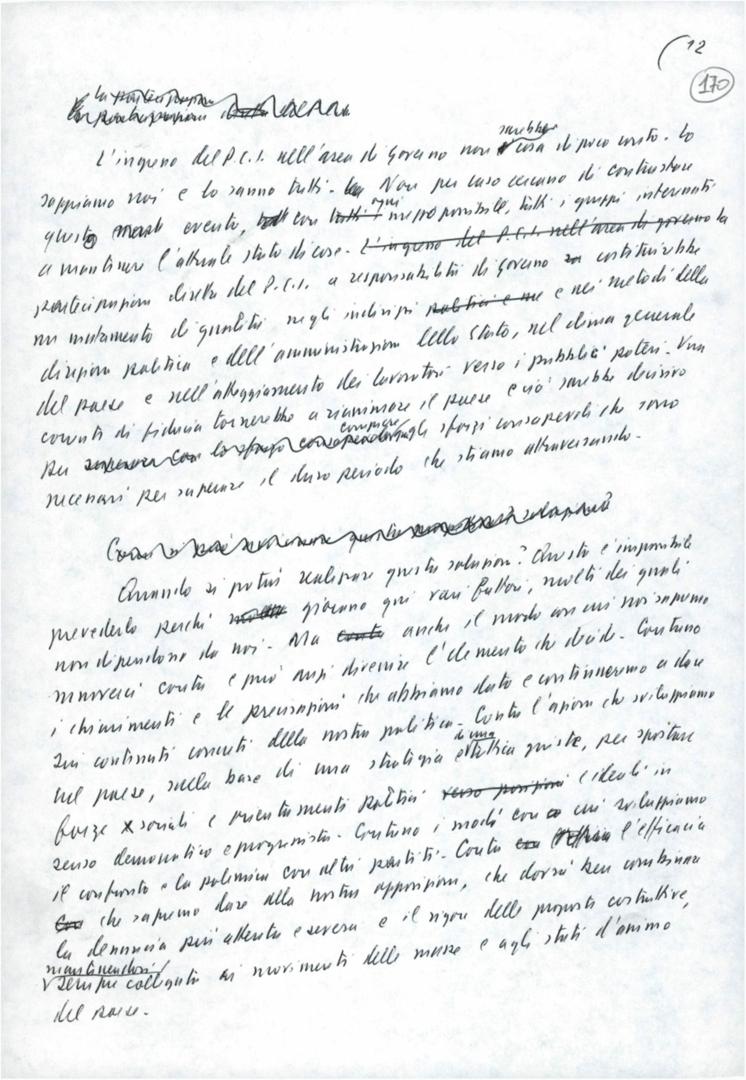 12
170
L'ingresso del P.C.I. nell'area di governo non sarebbe cosa di poco conto. Lo
sappiamo noi e lo sanno tutti. Non per caso cercano di contrastare
questo evento, con ogni mezzo possibile, tutti i gruppi interessati
a mantenere l'attuale stato di cose. L'ingresso del P.C.I. nell'area di governo la
partecipazione diretta del P.C.I. a responsabilità di governo costituirebbe
un mutamento di qualità negli indirizzi politici e ne e nei metodi della
direzione politica e dell'amministrazione dello Stato, nel clima generale
del paese e nell'atteggiamento dei lavoratori verso i pubblici poteri. Una
corrente di fiducia tornerebbe a rianimare il paese e ciò sarebbe decisivo
per compiere gli sforzi consapevoli che sono
necessari per superare il duro periodo che stiamo attraversando.
Quando si potrà realizzare questa soluzione? Questo è impossibile
prevederlo perché giocano qui vari fattori, molti dei quali
non dipendono da noi. Ma conta anche il modo con cui noi sapremo
muoverci conta e può anzi divenire l'elemento che decide. Contano
i chiarimenti e le precisazioni che abbiamo dato e continueremo a dare
sui contenuti concreti della nostra politica. Conta l'azione che sviluppiamo
nel paese, sulla base di una strategia e di una tattica giuste, per spostare
forze sociali e orientamenti politici verso posizioni e ideali in
senso democratico e progressista. Contano i modi con cui sviluppiamo
il confronto e la polemica con altri partiti. Conta l'efficacia
che sapremo dare alla nostra opposizione, che dovrà ben combinare
la denuncia più attenta e severa e il rigore delle proposte costruttive,
mantenendosi
sempre collegata ai movimenti delle masse e agli stati d'animo
del paese.